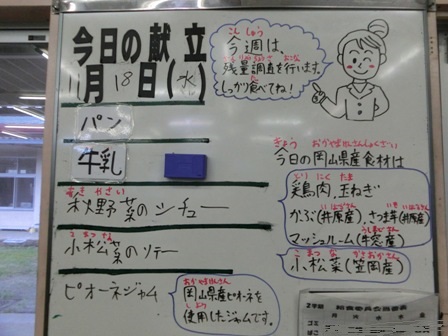 今日の献立
11月18日(水)
パン
牛乳
あきやさい
秋野菜のシチュー
こまつな
小松菜のソテー
ピオーネジャム
こんしゅう
今週は、
ざんりょうちょうさ おこな
残量調査を行います。
しっかり食べてね!
きょう おかやまけんさんしょくざい
今日の岡山県産食材は
とりにく たま
鶏肉、玉ねぎ
かぶ(井原産)、さつま芋(井原産)
マッシュルーム(牛窓産)
こまつな かさおかさん
小松菜(笠岡産)
おかやまけんさん
岡山県産ピオーネを
しよう
使用したジャムです。
給食委員会当番表